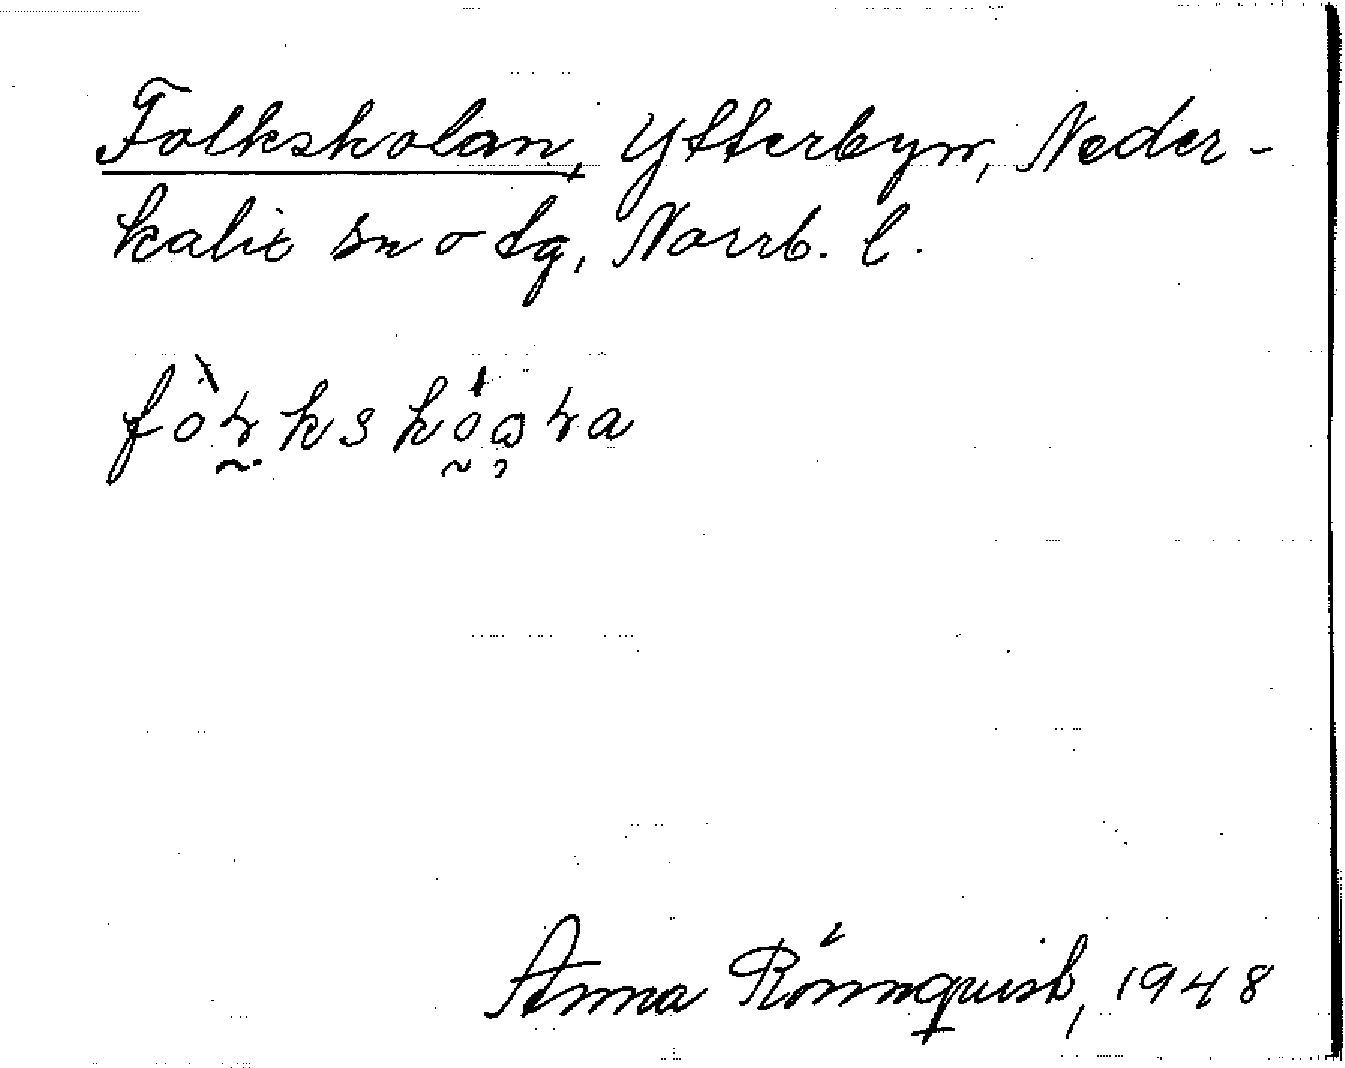 Folkskolan, Ytterbyn, Neder-
kalix sn o tg, Norrb. l.
Anna Rönnquist, 1948